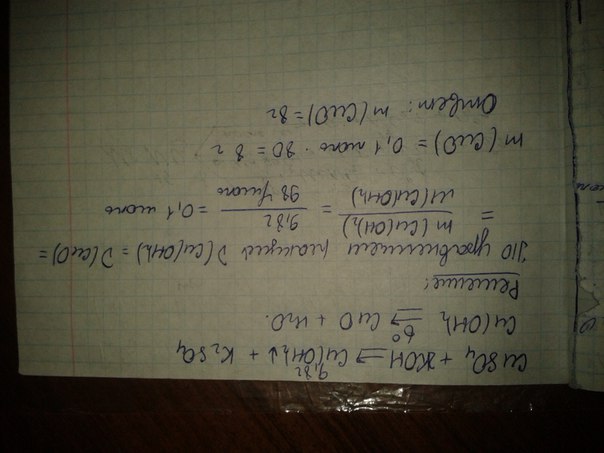 CuSO₄ + KOH → Cu(OH)₂↓ + K₂SO₄
9,8г
Cu(OH)₂ t°→ CuO + H₂O.
Решение:
По уравнению реакции ν(Cu(OH)₂) = ν(CuO) =
= m(Cu(OH)₂) / M(Cu(OH)₂) = 9,8г / 98 г/моль = 0,1 моль
m(CuO) = 0,1 моль · 80 = 8 г
Ответ: m(CuO) = 8г